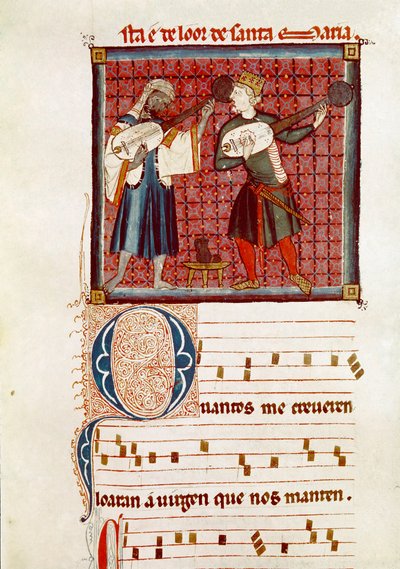 sta é de loor de santa Maria.
Quantos me creueren
loaran a uirgen que nos manten.